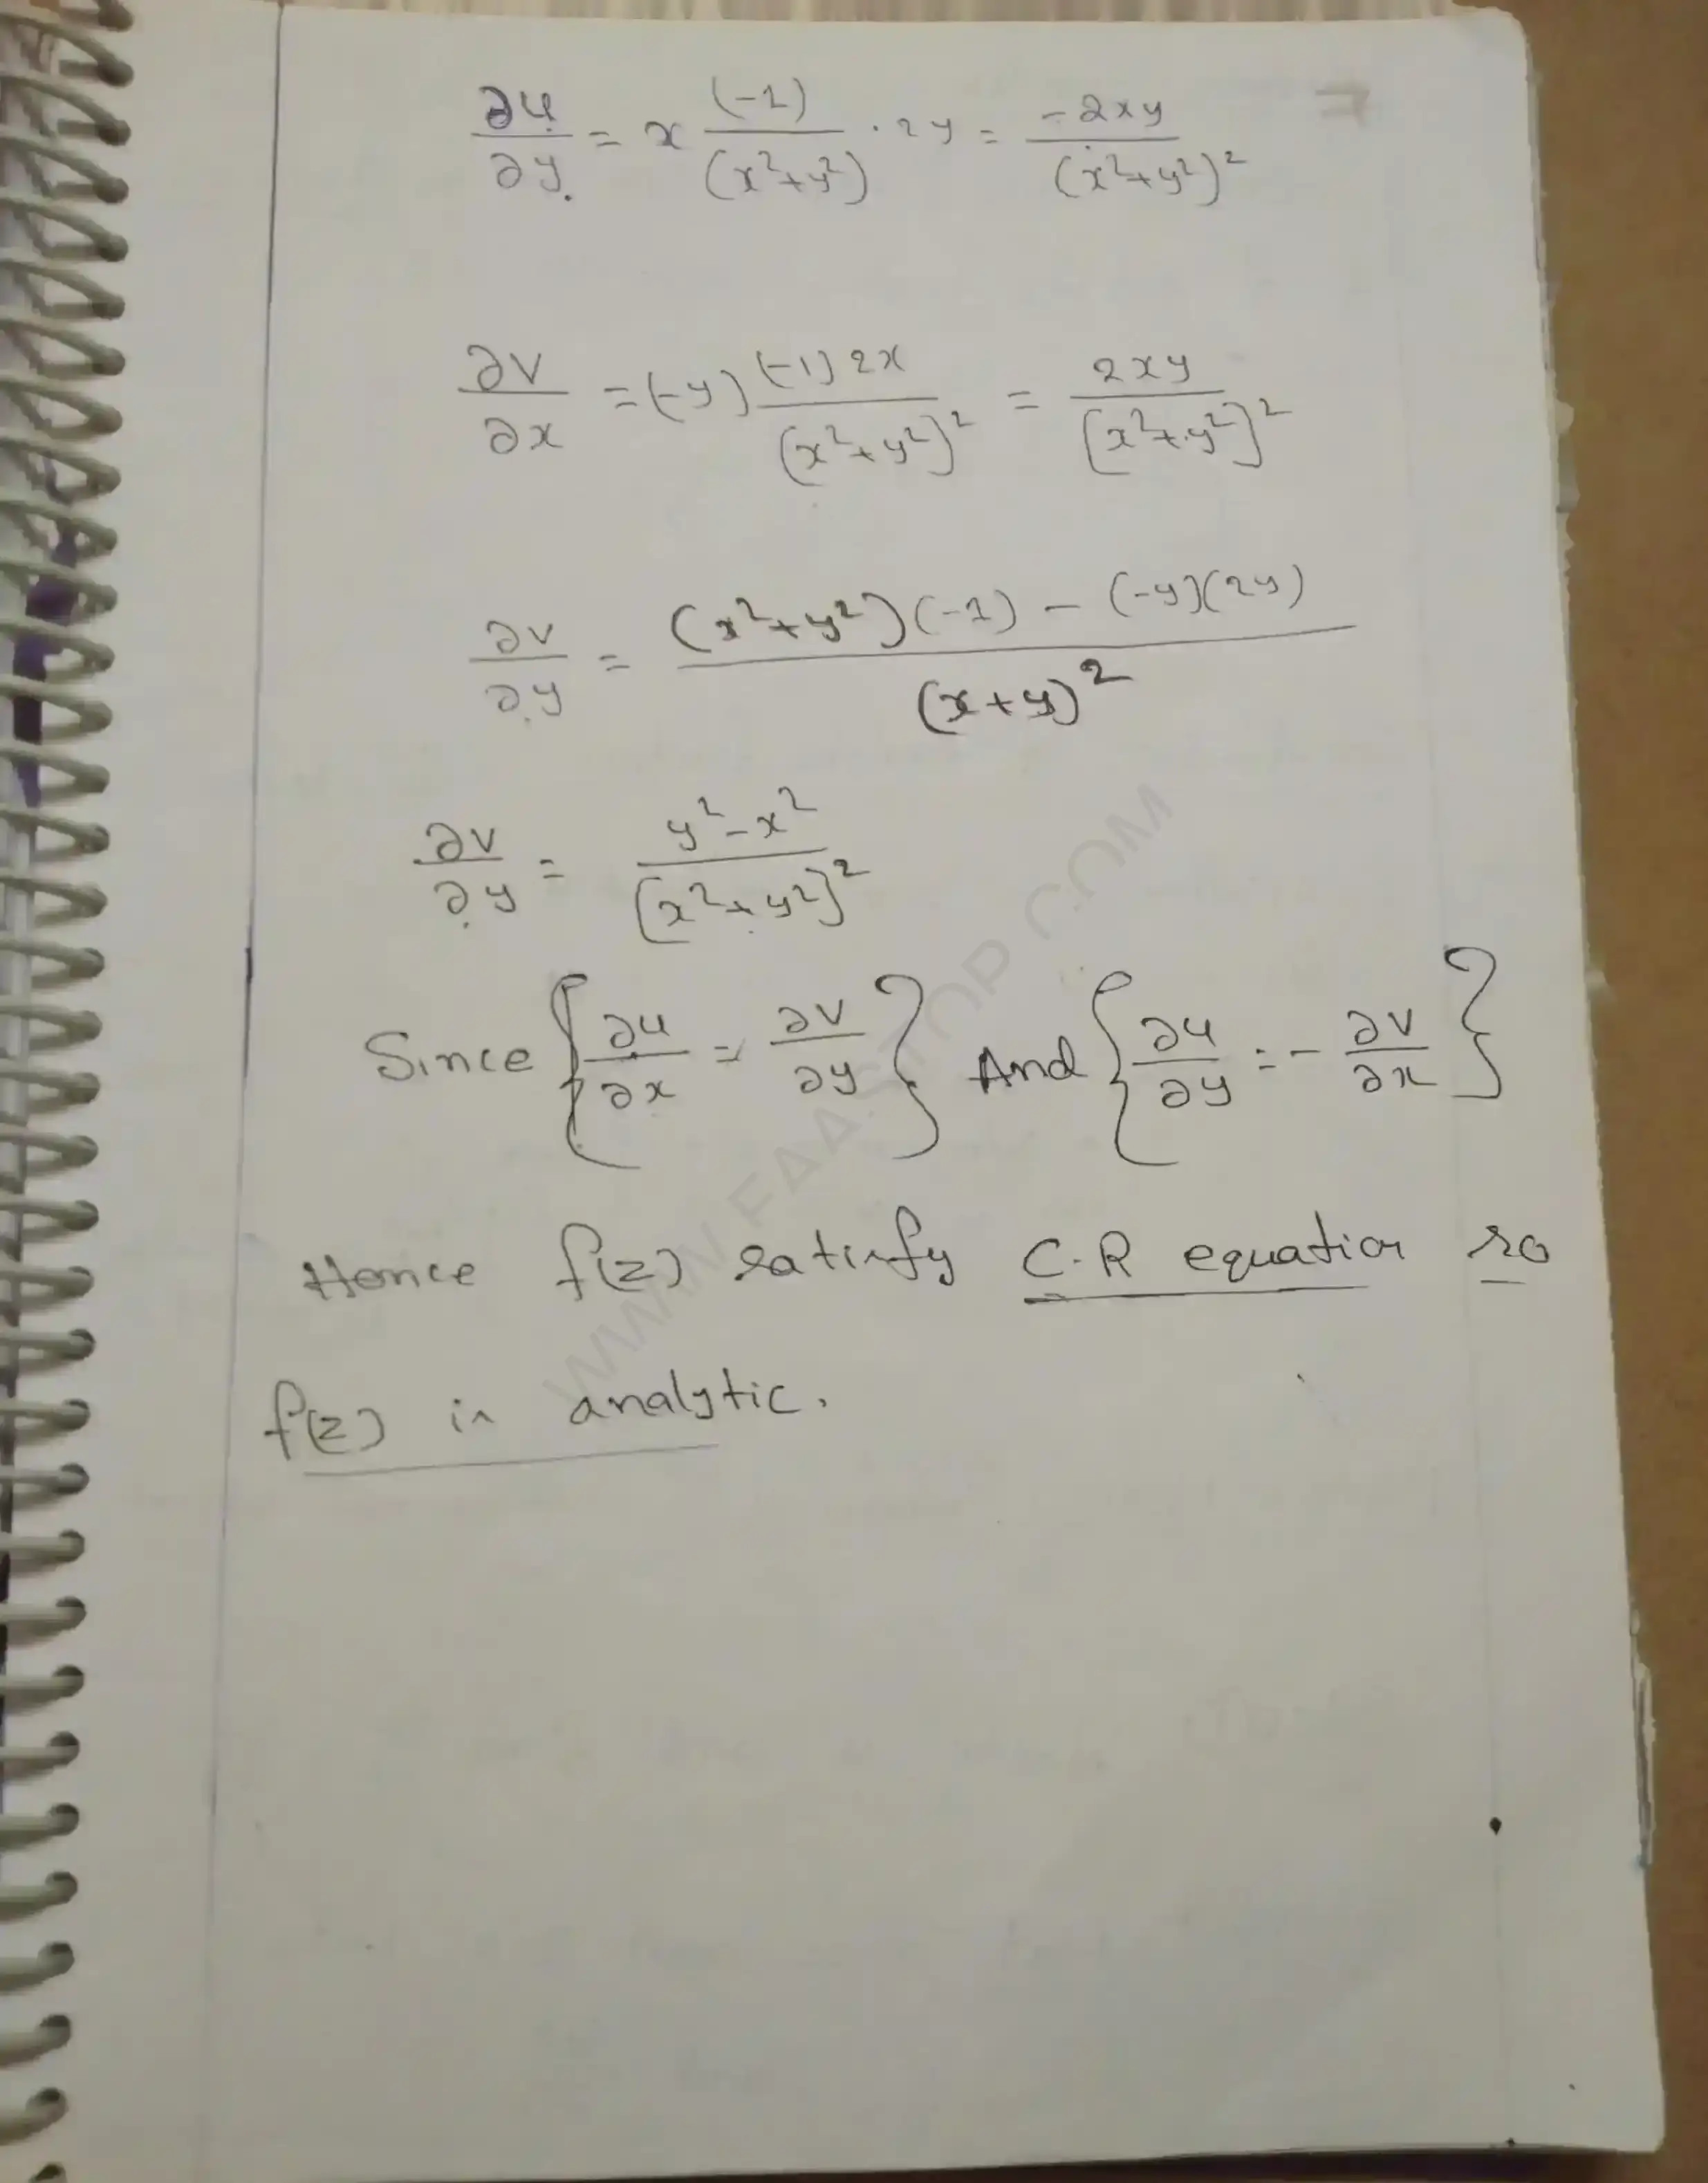 ∂u/∂y = x (-1)/(x²+y²) · 2y = -2xy/(x²+y²)²
∂v/∂x = (-y) (-1) 2x/(x²+y²)² = 2xy/(x²+y²)²
∂v/∂y = (x²+y²)(-1) - (-y)(2y)/(x+y)²
∂v/∂y = y²-x²/(x²+y²)²
Since {∂u/∂x = ∂v/∂y} And {∂u/∂y = - ∂v/∂x}
Hence f(z) satisfy C-R equation so
f(z) is analytic.
WWW.FAASTOP.COM